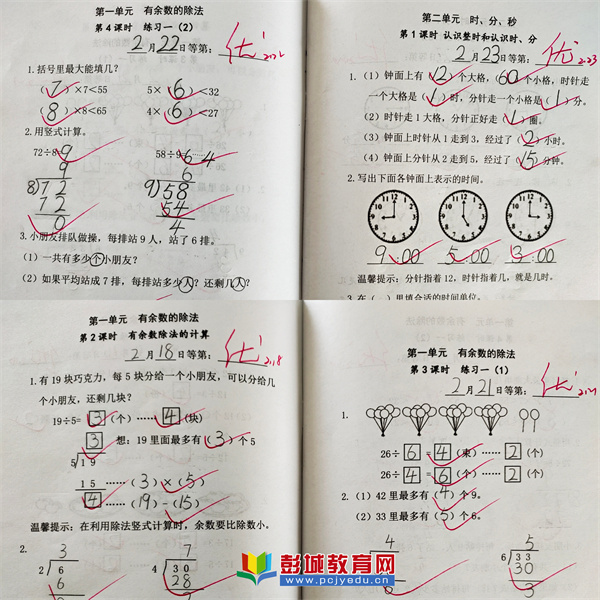 第一单元 有余数的除法
第4课时 练习一(2)
2月22日等第: 优 2.22
1.括号里最大能填几?
(7)×7<55 5×(6)<32
(8)×8<65 4×(6)<27
2.用竖式计算。
72÷8=9 58÷9=6……4
9
8)72
72
0
6
9)58
54
4
3.小朋友排队做操,每排站9人,站了6排。
(1)一共有多少个小朋友?
(2)如果平均站成7排,每排站多少人?还剩几人?
第二单元 时、分、秒
第1课时 认识整时和认识时、分
2月23日等第: 优 2.23
1.(1)钟面上有(12)个大格,(60)个小格,时针走
一个大格是(1)时,分针走一个小格是(1)分。
(2)时针走1大格,分针正好走(1)圈。
(3)钟面上时针从1走到3,经过了(2)小时。
(4)钟面上分针从2走到5,经过了(15)分钟。
2.写出下面各钟面上表示的时间。
9:00 5:00 3:00
温馨提示:分针指着12,时针指着几,就是几时。
3.在( )里填合适的时间单位。
第一单元 有余数的除法
第2课时 有余数除法的计算
2月18日等第: 优 2.18
1.有19块巧克力,每5块分给一个小朋友,可以分给几
个小朋友,还剩几块?
19÷5=3(个)……4(块)
3 想:19里面最多有(3)个5
5)19
15 ……(3)×(5)
4 ……(19)-(15)
温馨提示:在利用除法竖式计算时,余数要比除数小。
2.
3
2)6
6
0
7
4)30
28
第一单元 有余数的除法
第3课时 练习一(1)
2月21日等第: 优 2.21
1.
26÷6=4(束)……2(个)
26÷4=6(个)……2(个)
2.(1)42里最多有(4)个9。
(2)33里最多有(5)个6。
4
5
6)33
30
3
彭城教育网
www.pcjyedu.cn